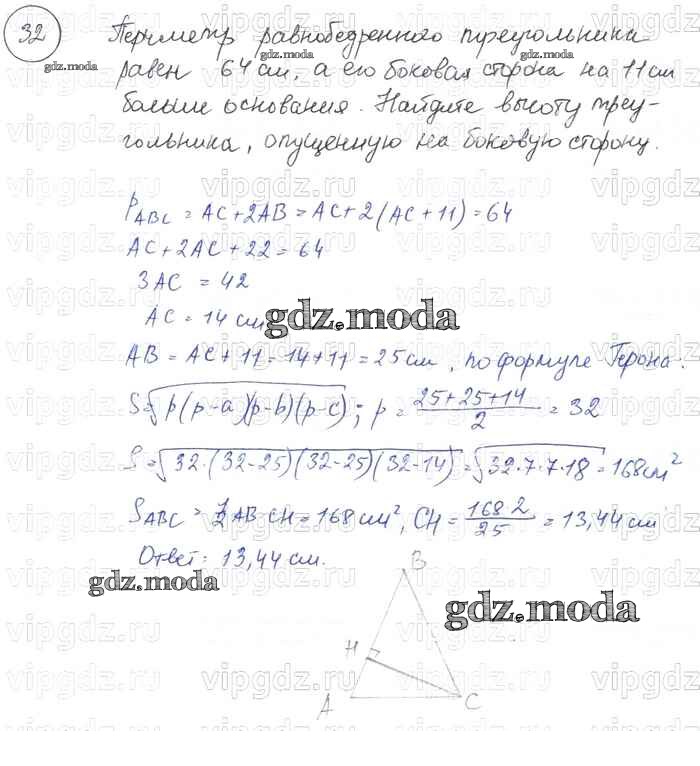 32
Периметр равнобедренного треугольника
равен 64 см, а его боковая сторона на 11 см
больше основания. Найдите высоту треу-
гольника, опущенную на боковую сторону.
P_ABC = AC + 2AB = AC + 2(AC + 11) = 64
AC + 2AC + 22 = 64
3AC = 42
AC = 14 см
AB = AC + 11 = 14 + 11 = 25 см, по формуле Герона:
S = √p(p-a)(p-b)(p-c); p = (25+25+14)/2 = 32
S = √32·(32-25)(32-25)(32-14) = √32·7·7·18 = 168 см²
S_ABC = 1/2 AB CH = 168 см², CH = 168 2/25 = 13,44 см
Ответ: 13,44 см.
B
H
A
C
gdz.moda
gdz.moda
gdz.moda
gdz.moda
gdz.moda
gdz.moda
vipgdz.ru